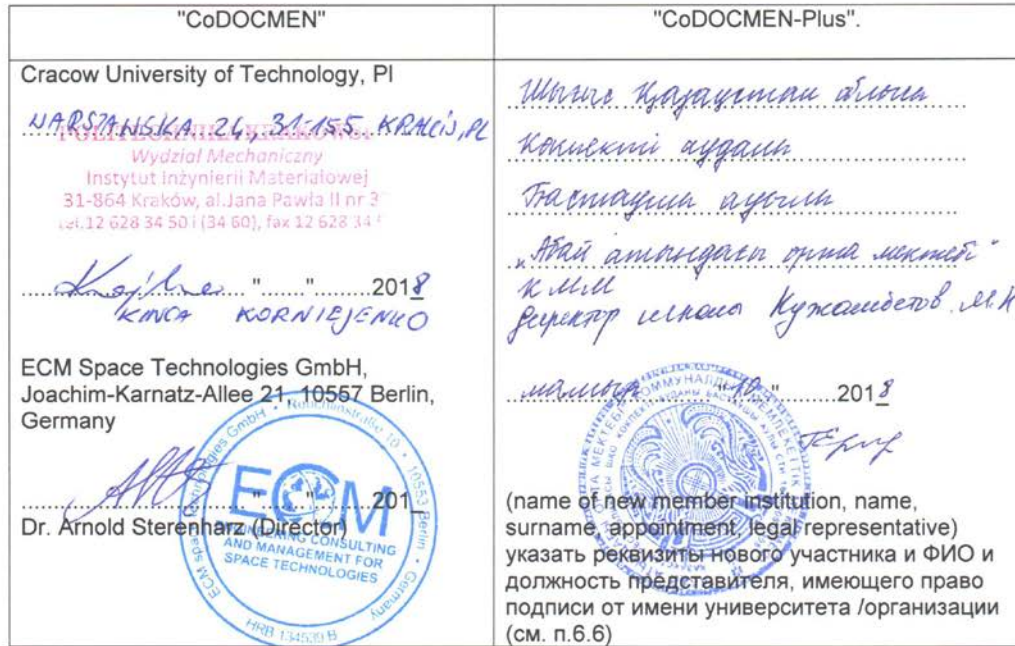 "CoDOCMEN"
Cracow University of Technology, Pl
WARSZAWSKA 24, 31-155 KRAKÓW, PL
POLITECHNIKA KRAKOWSKA
Wydział Mechaniczny
Instytut Inżynierii Materiałowej
31-864 Kraków, al.Jana Pawła II nr 3
tel.12 628 34 50 i (34 60), fax 12 628 34
"......."........2018
KINGA KORNIEJENKO
ECM Space Technologies GmbH,
Joachim-Karnatz-Allee 21, 10557 Berlin,
Germany
"......."........201_
Dr. Arnold Sterenharz (Director)
ECM Space Technologies GmbH • Robert • 10553 Berlin • Germany
ECM
ENGINEERING CONSULTING
AND MANAGEMENT FOR
SPACE TECHNOLOGIES
HRB 134539 B
"CoDOCMEN-Plus".
Шығыс Қазақстан облысы
Көкпекті ауданы
ауылы
„Абай атындағы орта мектебі"
КММ
директор школы Кужамбетов М.К
мамыр "10" 2018
(name of new member institution, name,
surname, appointment, legal representative)
указать реквизиты нового участника и ФИО и
должность представителя, имеющего право
подписи от имени университета /организации
(см. п.6.6)